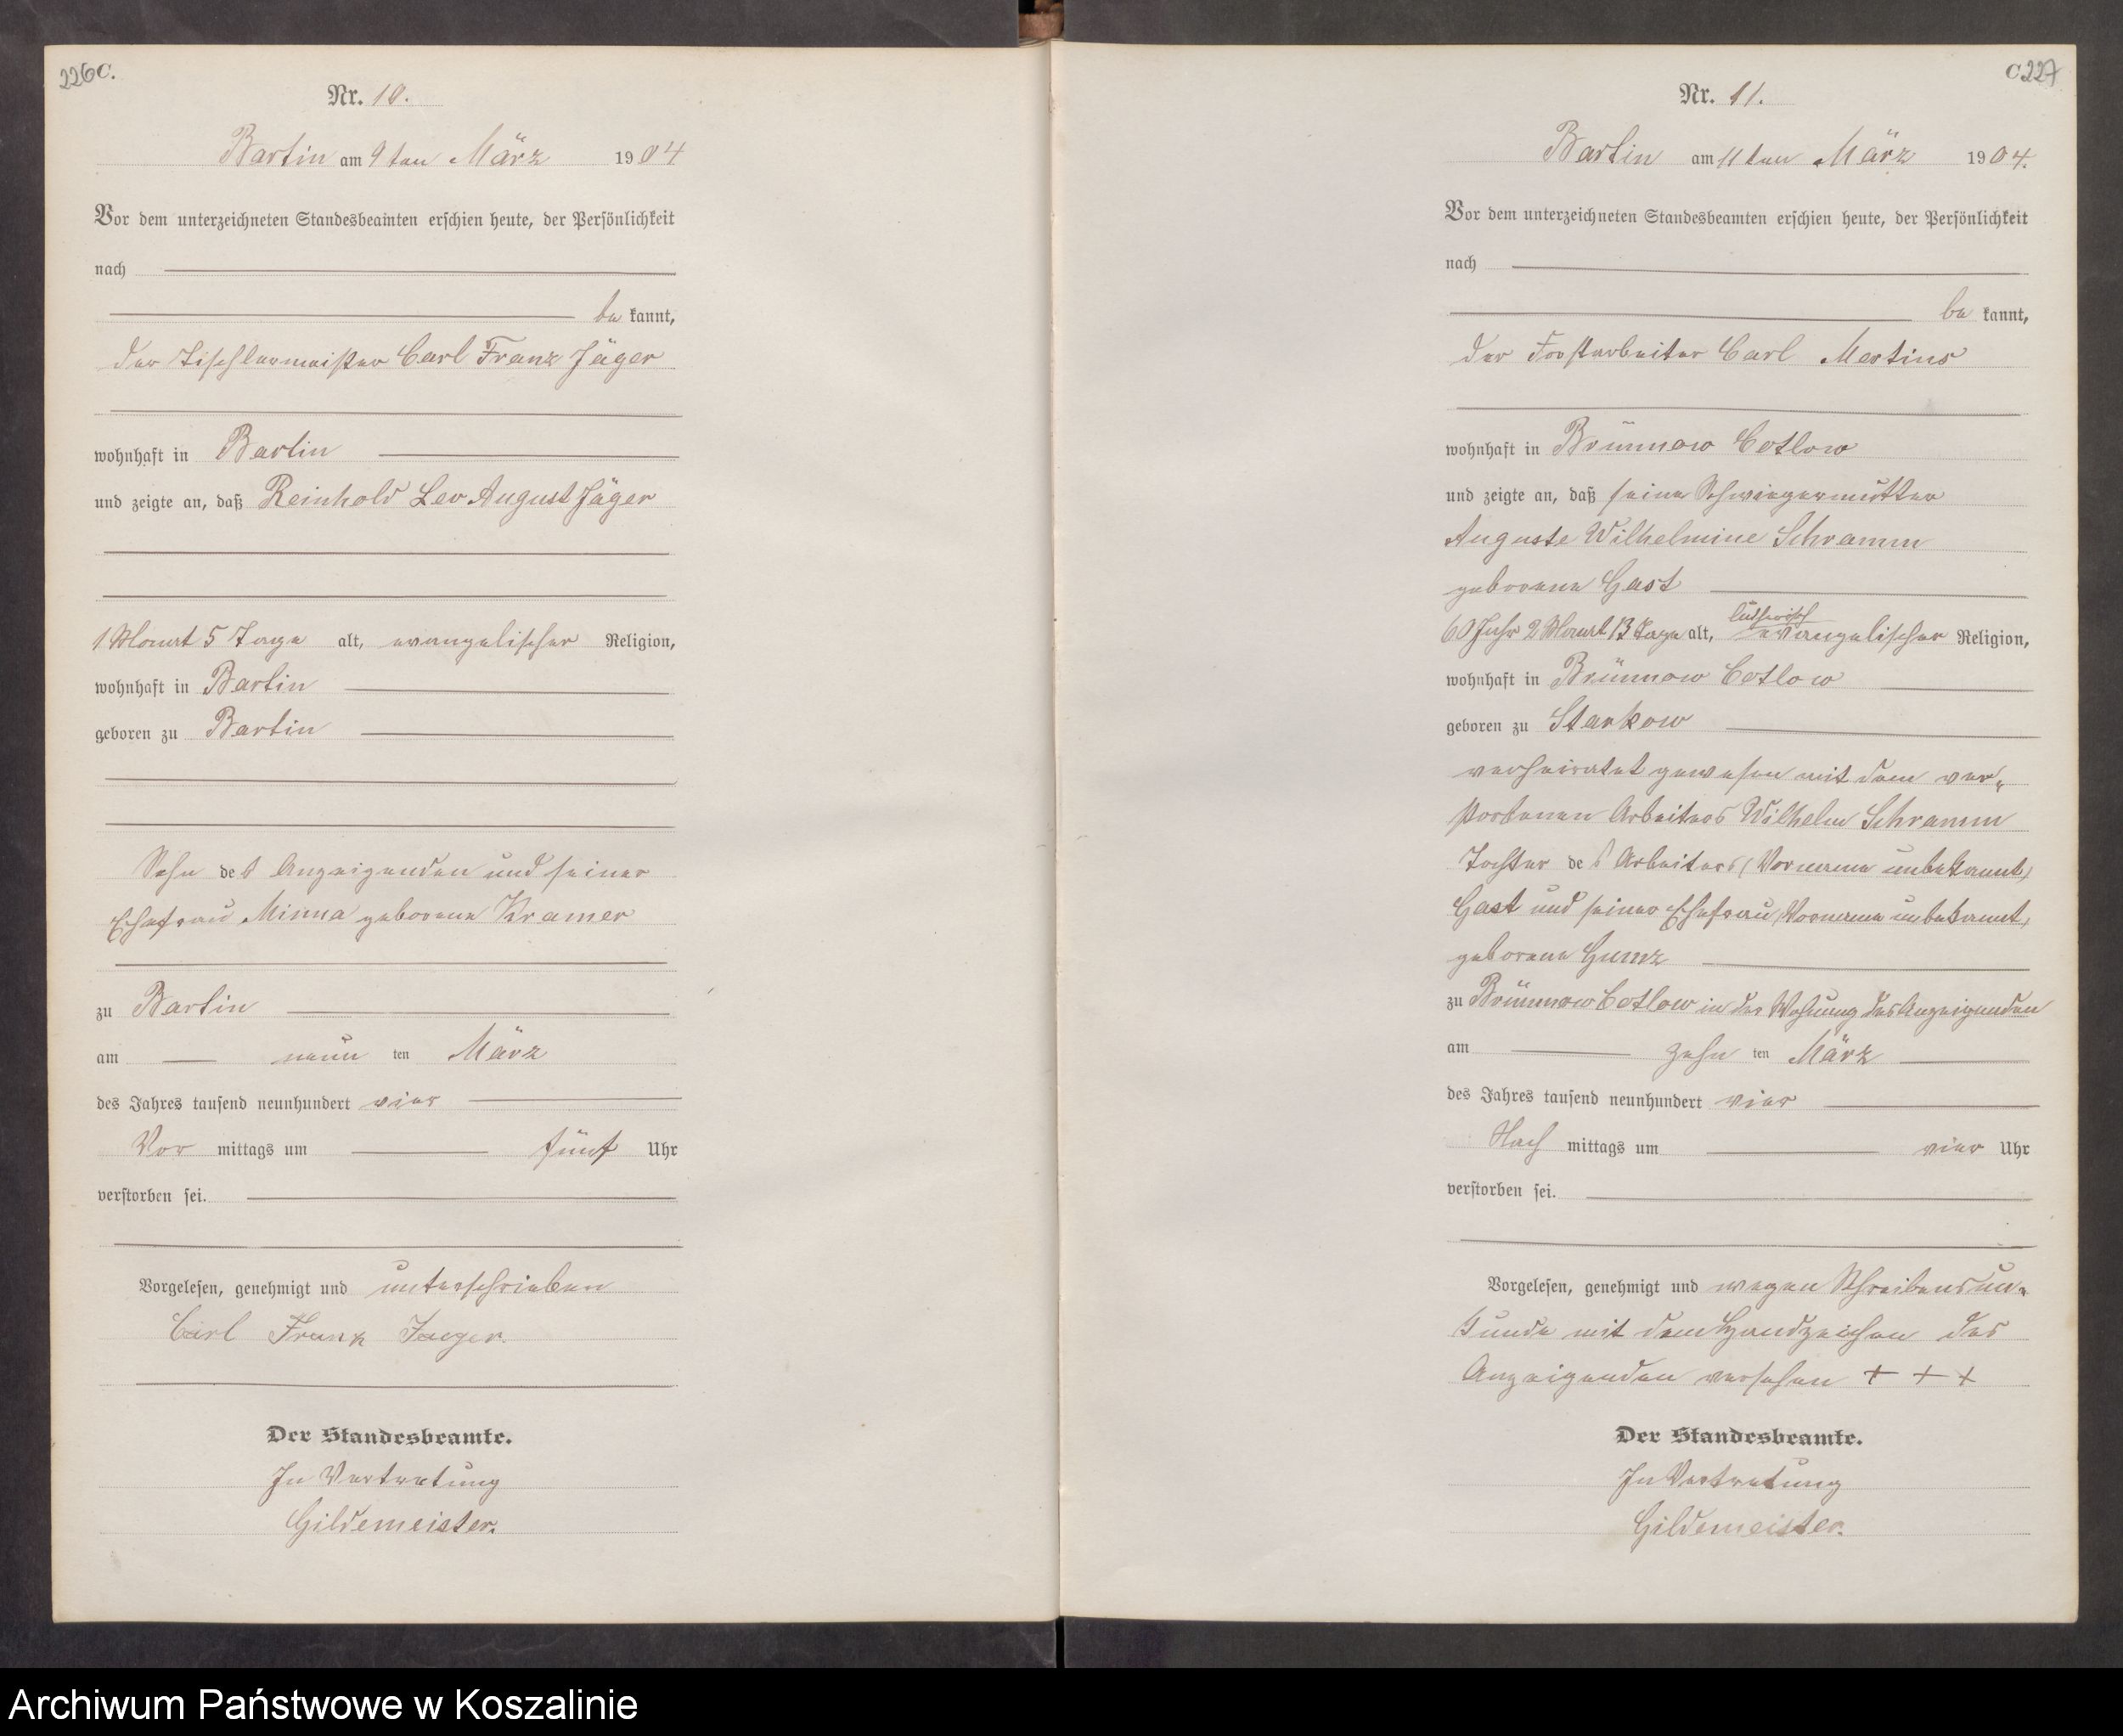 226 C.
Nr. 10.
Bartin am 9ten März 1904
Vor dem unterzeichneten Standesbeamten erschien heute, der Persönlichkeit
nach
bekannt,
der Tischlermeister Carl Franz Jäger
wohnhaft in Bartin
und zeigte an, daß Reinhold Leo August Jäger
1 Monat 5 Tage alt, evangelischer Religion,
wohnhaft in Bartin
geboren zu Bartin
Sohn des Anzeigenden und seiner
Ehefrau Minna geborene Kramer
zu Bartin
am neun ten März
des Jahres tausend neunhundert vier
Vor mittags um fünf Uhr
verstorben sei.
Vorgelesen, genehmigt und unterschrieben
Carl Franz Jaeger.
Der Standesbeamte.
In Vertretung
Gildemeister.
C 227
Nr. 11.
Bartin am 11ten März 1904.
Vor dem unterzeichneten Standesbeamten erschien heute, der Persönlichkeit
nach
bekannt,
der Forstarbeiter Carl Mertins
wohnhaft in Brünnow Cotlow
und zeigte an, daß seine Schwiegermutter
Auguste Wilhelmine Schramm
geborene Gast
lutherisch
60 Jahr 2 Monat 13 Tage alt, evangelischer Religion,
wohnhaft in Brünnow Cotlow
geboren zu Starkow
verheiratet gewesen mit dem ver„
storbenen Arbeiters Wilhelm Schramm
Tochter des Arbeiters (Vorname unbekannt)
Gast und seiner Ehefrau (Vorname unbekannt)
geborene Gumz
zu Brünnow Cotlow in der Wohnung des Anzeigenden
am zehn ten März
des Jahres tausend neunhundert vier
Nach mittags um vier Uhr
verstorben sei.
Vorgelesen, genehmigt und wegen Schreibensun„
kunde mit dem Handzeichen des
Anzeigenden versehen + + +
Der Standesbeamte.
In Vertretung
Gildemeister.
Archiwum Państwowe w Koszalinie